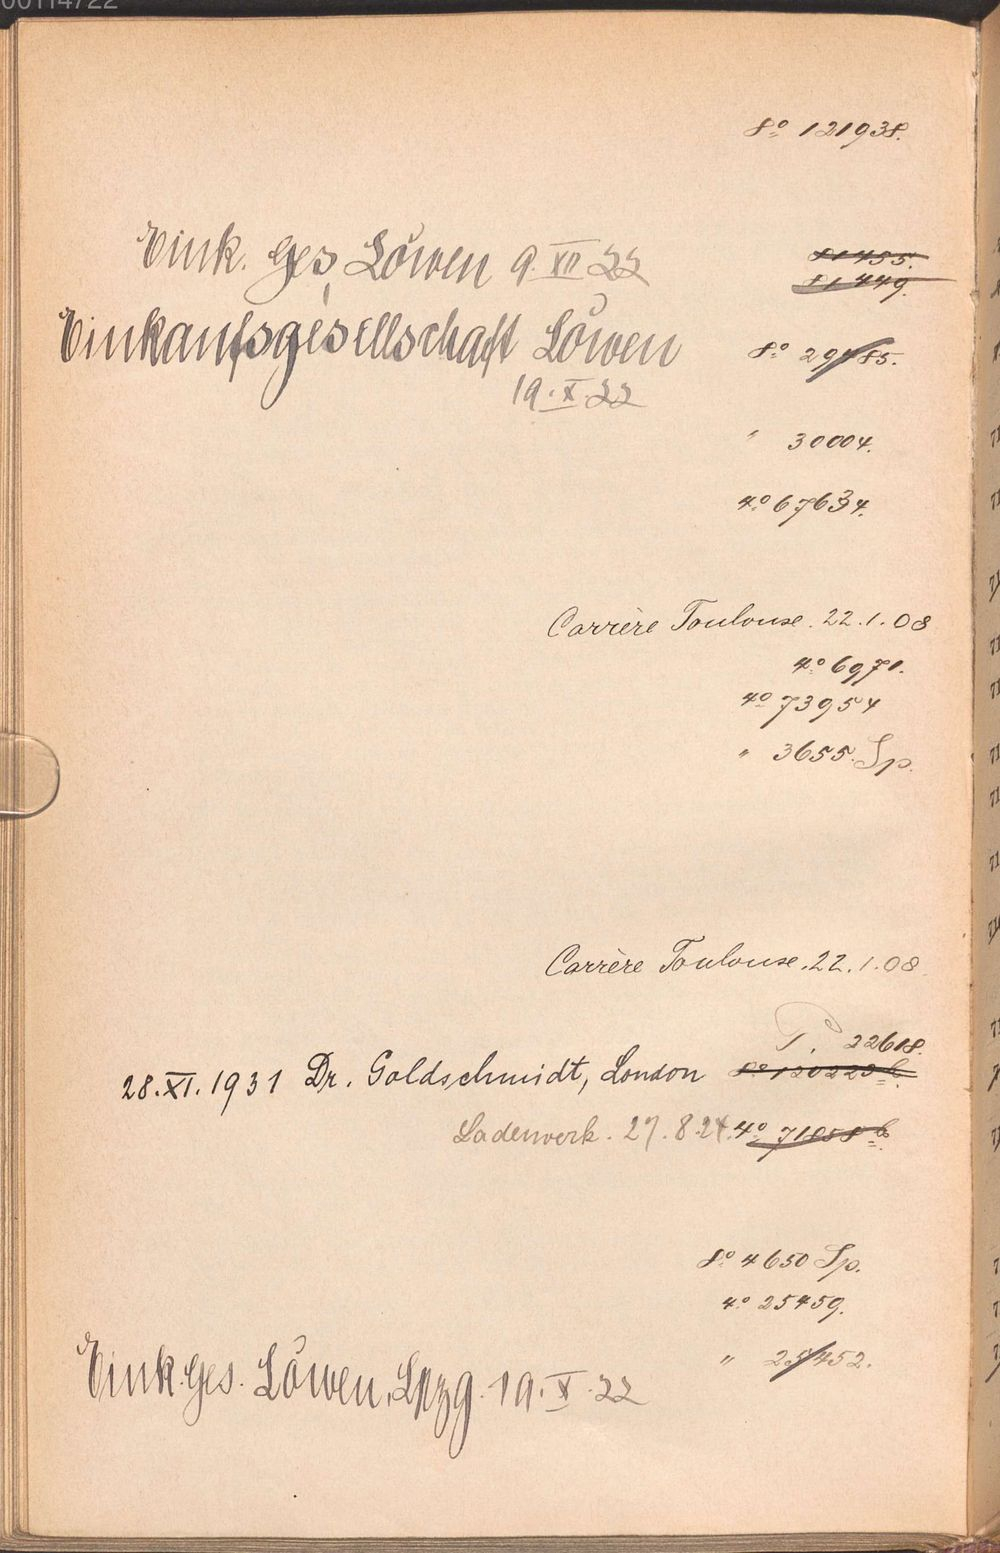 00114722
8º 121938.
Eink. Ges. Löwen 9. XII 22
81455.
81449.
Einkaufsgesellschaft Löwen
8º 29485.
19. X. 22
" 30004.
4º 67634.
Carrère Toulouse. 22.1.08
4º 6971.
4º 73954
" 3655. Sp.
Carrère Toulouse. 22.1.08
P. 22618.
28.XI.1931 Dr. Goldschmidt, London 8º 120229 b.
Ladenwerk. 27.8.24. 4º 71858 b.
8º 4650 Sp.
4º 25459.
" 25452.
Eink. Ges. Löwen, Lpzg. 19. X. 22